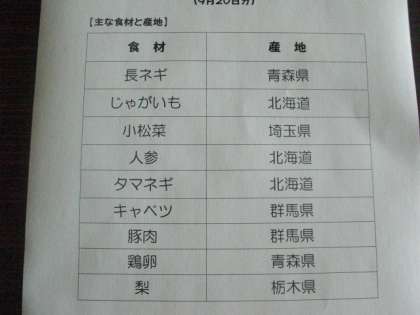 (9月20日分)
【主な食材と産地】
食 材 産 地
長ネギ 青森県
じゃがいも 北海道
小松菜 埼玉県
人参 北海道
タマネギ 北海道
キャベツ 群馬県
豚肉 群馬県
鶏卵 青森県
梨 栃木県